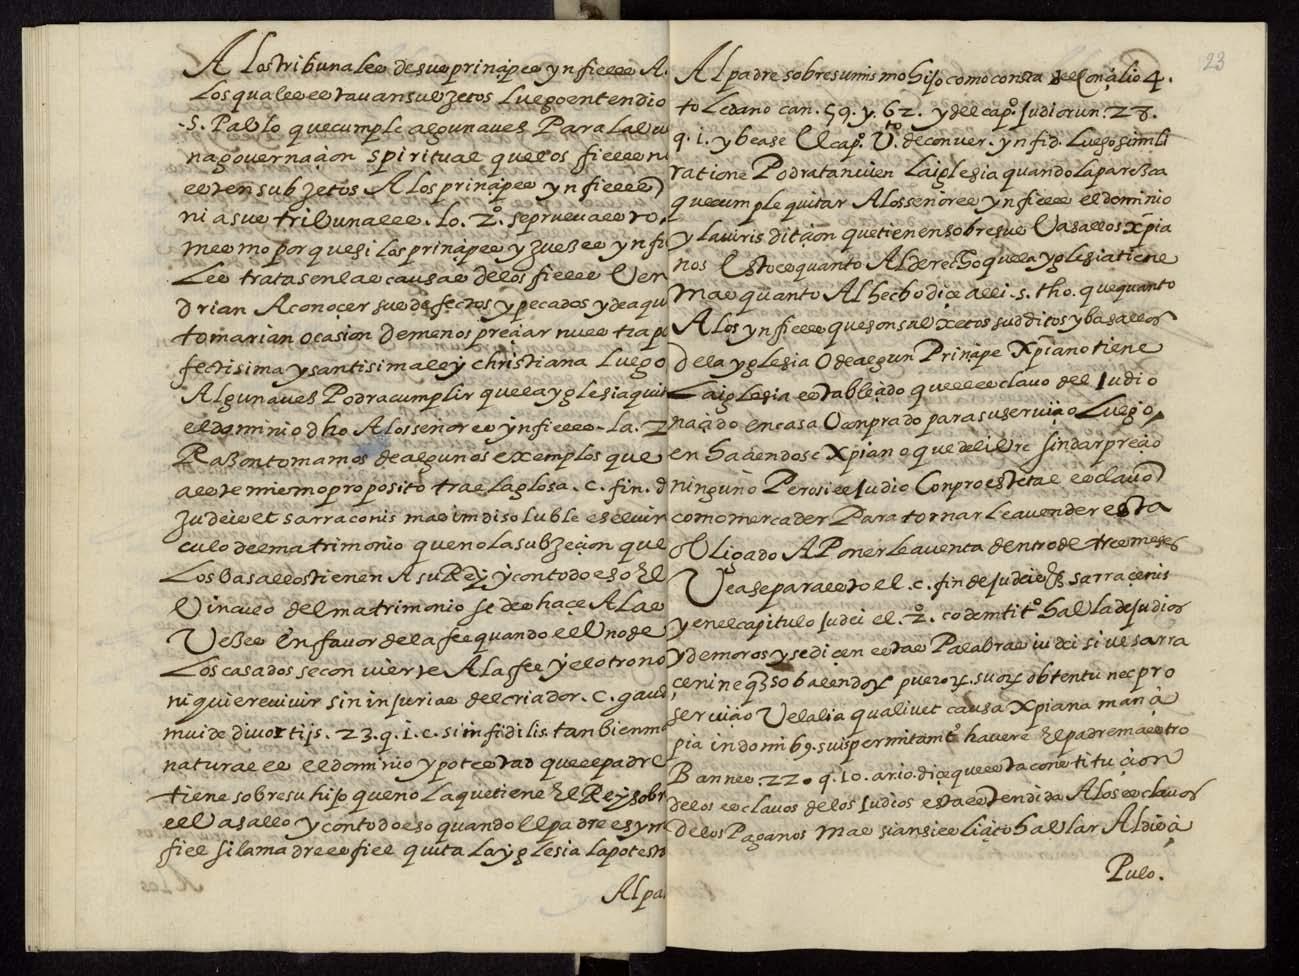 A los tribunales de sus prinçipes ynfieles A.
los quales estavan subjetos luego entendio
.S. Pablo que cumple algunaves Para la bu
na governaçion spiritual que los fieles n
esten subjetos A los prinçipes ynfieles
ni a sus tribunales. lo. 2º. se prueva esto.
mesmo por que si los prinçipes y juezes ynfi
les tratasen las causas de los fieles Ver
drian A conoçer sus defectos y pecados y de aqu
tomarian ocasion de menospreçiar nuestra pe
fectisima y santisima ley christiana luego
Algunaves Podra cumplir que la yglesia quit
el dominio dho A los señores ynfieles. la. 2
Razon tomamos de algunos exemplos que
a este mismo proposito trae la glosa. c. fin. d
judeis et sarraconis mas indisoluble es el vin
culo de el matrimonio que no la subjeçion que
los basallos tienen A su Rey y con todo eso El
Vinculo del matrimonio se deshaçe A las
Vezes En favor de la fee quando el Uno de
los casados se convierte A la fee y el otro no
ni quiere vivir sin injurias del criador. C. gaud
mui de divortijs. 23. q. 1. c. si infidilis. tanbien mas
natural es el dominio y potestad que el padre
tiene sobre su hijo que no la que tiene El Rey sobr
el Vasallo y con todo eso quando El padre es yn
fiel si la madre es fiel quita la yglesia la potest
Al pa
23
Al padre sobre su mismo hijo como consta del Conçilio 4.
toledano can. 59. y. 62. y del cap. judiorun. 28.
q. 1. y bease El cap. Uto. de conver. ynfid. luego simili
ratione Podra tanvien la iglesia quando la paresca
que cumple quitar A los señores ynfieles el dominio
y la iurisdiçion que tienen sobre sus Vasallos xpia
nos Esto es quanto Al derecho que la yglesia tiene
mas quanto Al hecho diçe alli. s. tho. que quanto
A los ynfieles que son subxetos sudditos y basallos
de la yglesia O de algun Prinçipe Xpiano tiene
la iglesia estableçido que el esclavo del Judio
naçido en casa O comprado para su serviçio luego
en haçiendose Xpiano que de libre sin dar preçio
ninguno Pero si el Judio Conpro este tal esclavo
como mercader Para tornarle a vender esta
obligado A Ponerle a venta dentro de tres meses
Vease para esto el. c. fin de judeis Et sarraçenis
y en el capitulo judei el. 2º. codem titº habla de judios
y de moros y se diçen estas Palabras iudei sive sarra
çeni neqz so balendorz puerorz. suorz obtentu nec pro
serviçio Vel alia qualivet causa Xpiana mançi
pia in domibg. suis permitamtº havere El padre maestro
Bannes. 22. q. 10. ario. diçe que esta constituçion
de los esclavos de los Judios esta estendida A los esclavos
de los Paganos mas si ansi es liçito hablar Al diçi
Pulo.